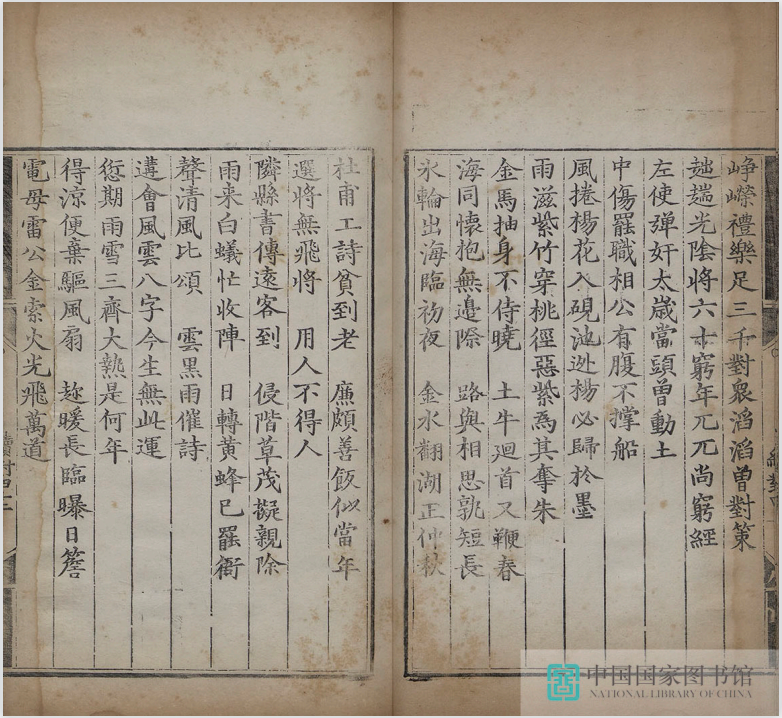 崢嶸禮樂足三千對衆滔滔曽對策
趉遄光陰將六十窮年兀兀尚窮經
左使彈奸太歲當頭曽動土
中傷罷職相公有腹不撑船
風捲楊花入硯池迯楊必歸於墨
雨滋紫竹穿桃徑惡紫爲其奪朱
金馬抽身不侍曉　土牛廻首又鞭春
海同懷抱無邊際　路與相思孰短長
氷輪出海臨初夜　金水翻湖正仲秋
杜甫工詩貧到老　廉頗善飯似當年
選將無飛將　用人不得人
隣縣書傳遠客到　侵階草茂擬親除
雨来白蟻忙收陣　日轉黃蜂已罷衙
聲清風比頌　雲黑雨催詩
遘會風雲八字今生無此運
愆期雨雪三齊大熟是何年
得涼便棄驅風扇　趂暖長臨曝日簷
電母雷公金索火光飛萬道
續對
中国国家图书馆
NATIONAL LIBRARY OF CHINA